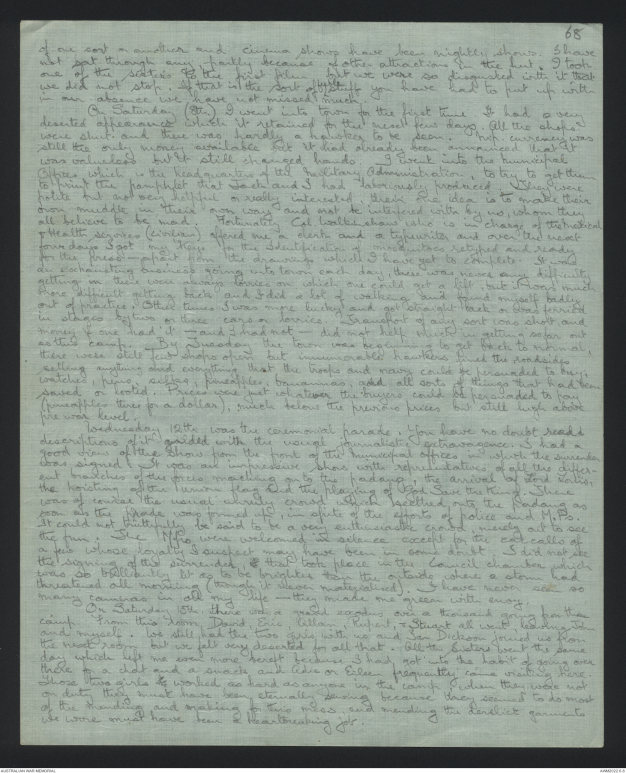 68
of one sort or another and cinema shows have been nightly shows. I have
not sat through any partly because of other attractions in the hut. I took
one of the sisters to the first film but we were so disgusted with it that
we did not stop. If that is the sort of stuff you have had to put up with
in our absence we have not missed much.
On Saturday (8th) I went into town for the first time. It had a very
deserted appearance which it retained for the next few days. All the shops
were shut and there was hardly a hawker to be seen. Nip. currency was
still the only money available but it had already been announced that it
was valueless but it still changed hands. I went into the Municipal
Offices which is the headquarters of the Military Administration, to try to get them
to print the pamphlet that Jack and I had laboriously produced. They were
polite but not very helpful or really interested, their one idea is to make their
own muddle in their own way and not be interfered with by us, whom they
all believe to be mad. Fortunately Col. who is in charge of the medical
& Health services (civilian) offered me a clerk and a typewriter and over the next
four days I got my keys for the identification of mosquitoes retyped and ready
for the press — apart from the drawings which I have yet to complete. It was
an exhausting business going into town each day, there was never any difficulty
getting in there was always lorries on which one could get a lift but it was much
more difficult getting back and I did a lot of walking and found myself badly
out of practice. Other times I was more lucky and got straight back or was ferried
in stages by two or three cars or lorries. Transport of any sort was short and
money if one had it — and I had not — did not help much in getting as far out
as this camp. By Tuesday the town was beginning to get back to normal,
there were still few shops open but innumerable hawkers lined the roadsides
selling anything and everything that the troops and navy could be persuaded to buy,
watches, pens, silks, pineapples, bananas, and all sorts of things that had been
saved or looted. Prices were just whatever the buyers could be persuaded to pay
(pineapples three for a dollar), much below the previous prices but still high above
pre war level.
Wednesday 12th was the ceremonial parade. You have no doubt read
descriptions of it with the usual journalistic extravagence. I had a
good view of the show from the front of the municipal offices in which the surrender
was signed. It was an impressive show with representatives of all the differ-
ent branches of the forces marching onto the padang, the arrival of Lord Louis,
the hoisting of the Union Flag and the playing of God Save the King. There
was of course the usual unruly crowd which seethed onto the Padang as
soon as the parade was formed up, in spite of the efforts of police and M.Ps.
It could not truthfully be said to be a very enthusiastic crowd, merely out to see
the fun. The were welcomed in silence except for the cat calls of
a few whose loyalty I suspect may have been in some doubt. I did not see
the signing of the surrender, that took place in the Council chamber which
was so brilliantly lit as to be brighter than the outside where a storm had
threatened all morning (though it never materialised). I have never seen so
many cameras in all my life — they made me green with envy.
On Saturday 15th there was a grand exodus over a thousand going from this
camp. From this room David, Eric, Rupert, & Stuart all went leaving Jim
and myself. We still had the two girls with us and Ian Dickson joined us from
the next room but we felt very deserted for all that. All the Sisters went the same
day which left me even more bereft because I had got into the habit of going over
there for a chat and a smack and Edie or Eileen frequently came visiting here.
Those two girls worked as hard as anyone in the camp, when they were not
on duty they must have been eternally sewing because they seemed to do most
of the mending and making for this mess and mending the derelict garments
we wore must have been a heartbreaking job.
AUSTRALIAN WAR MEMORIAL